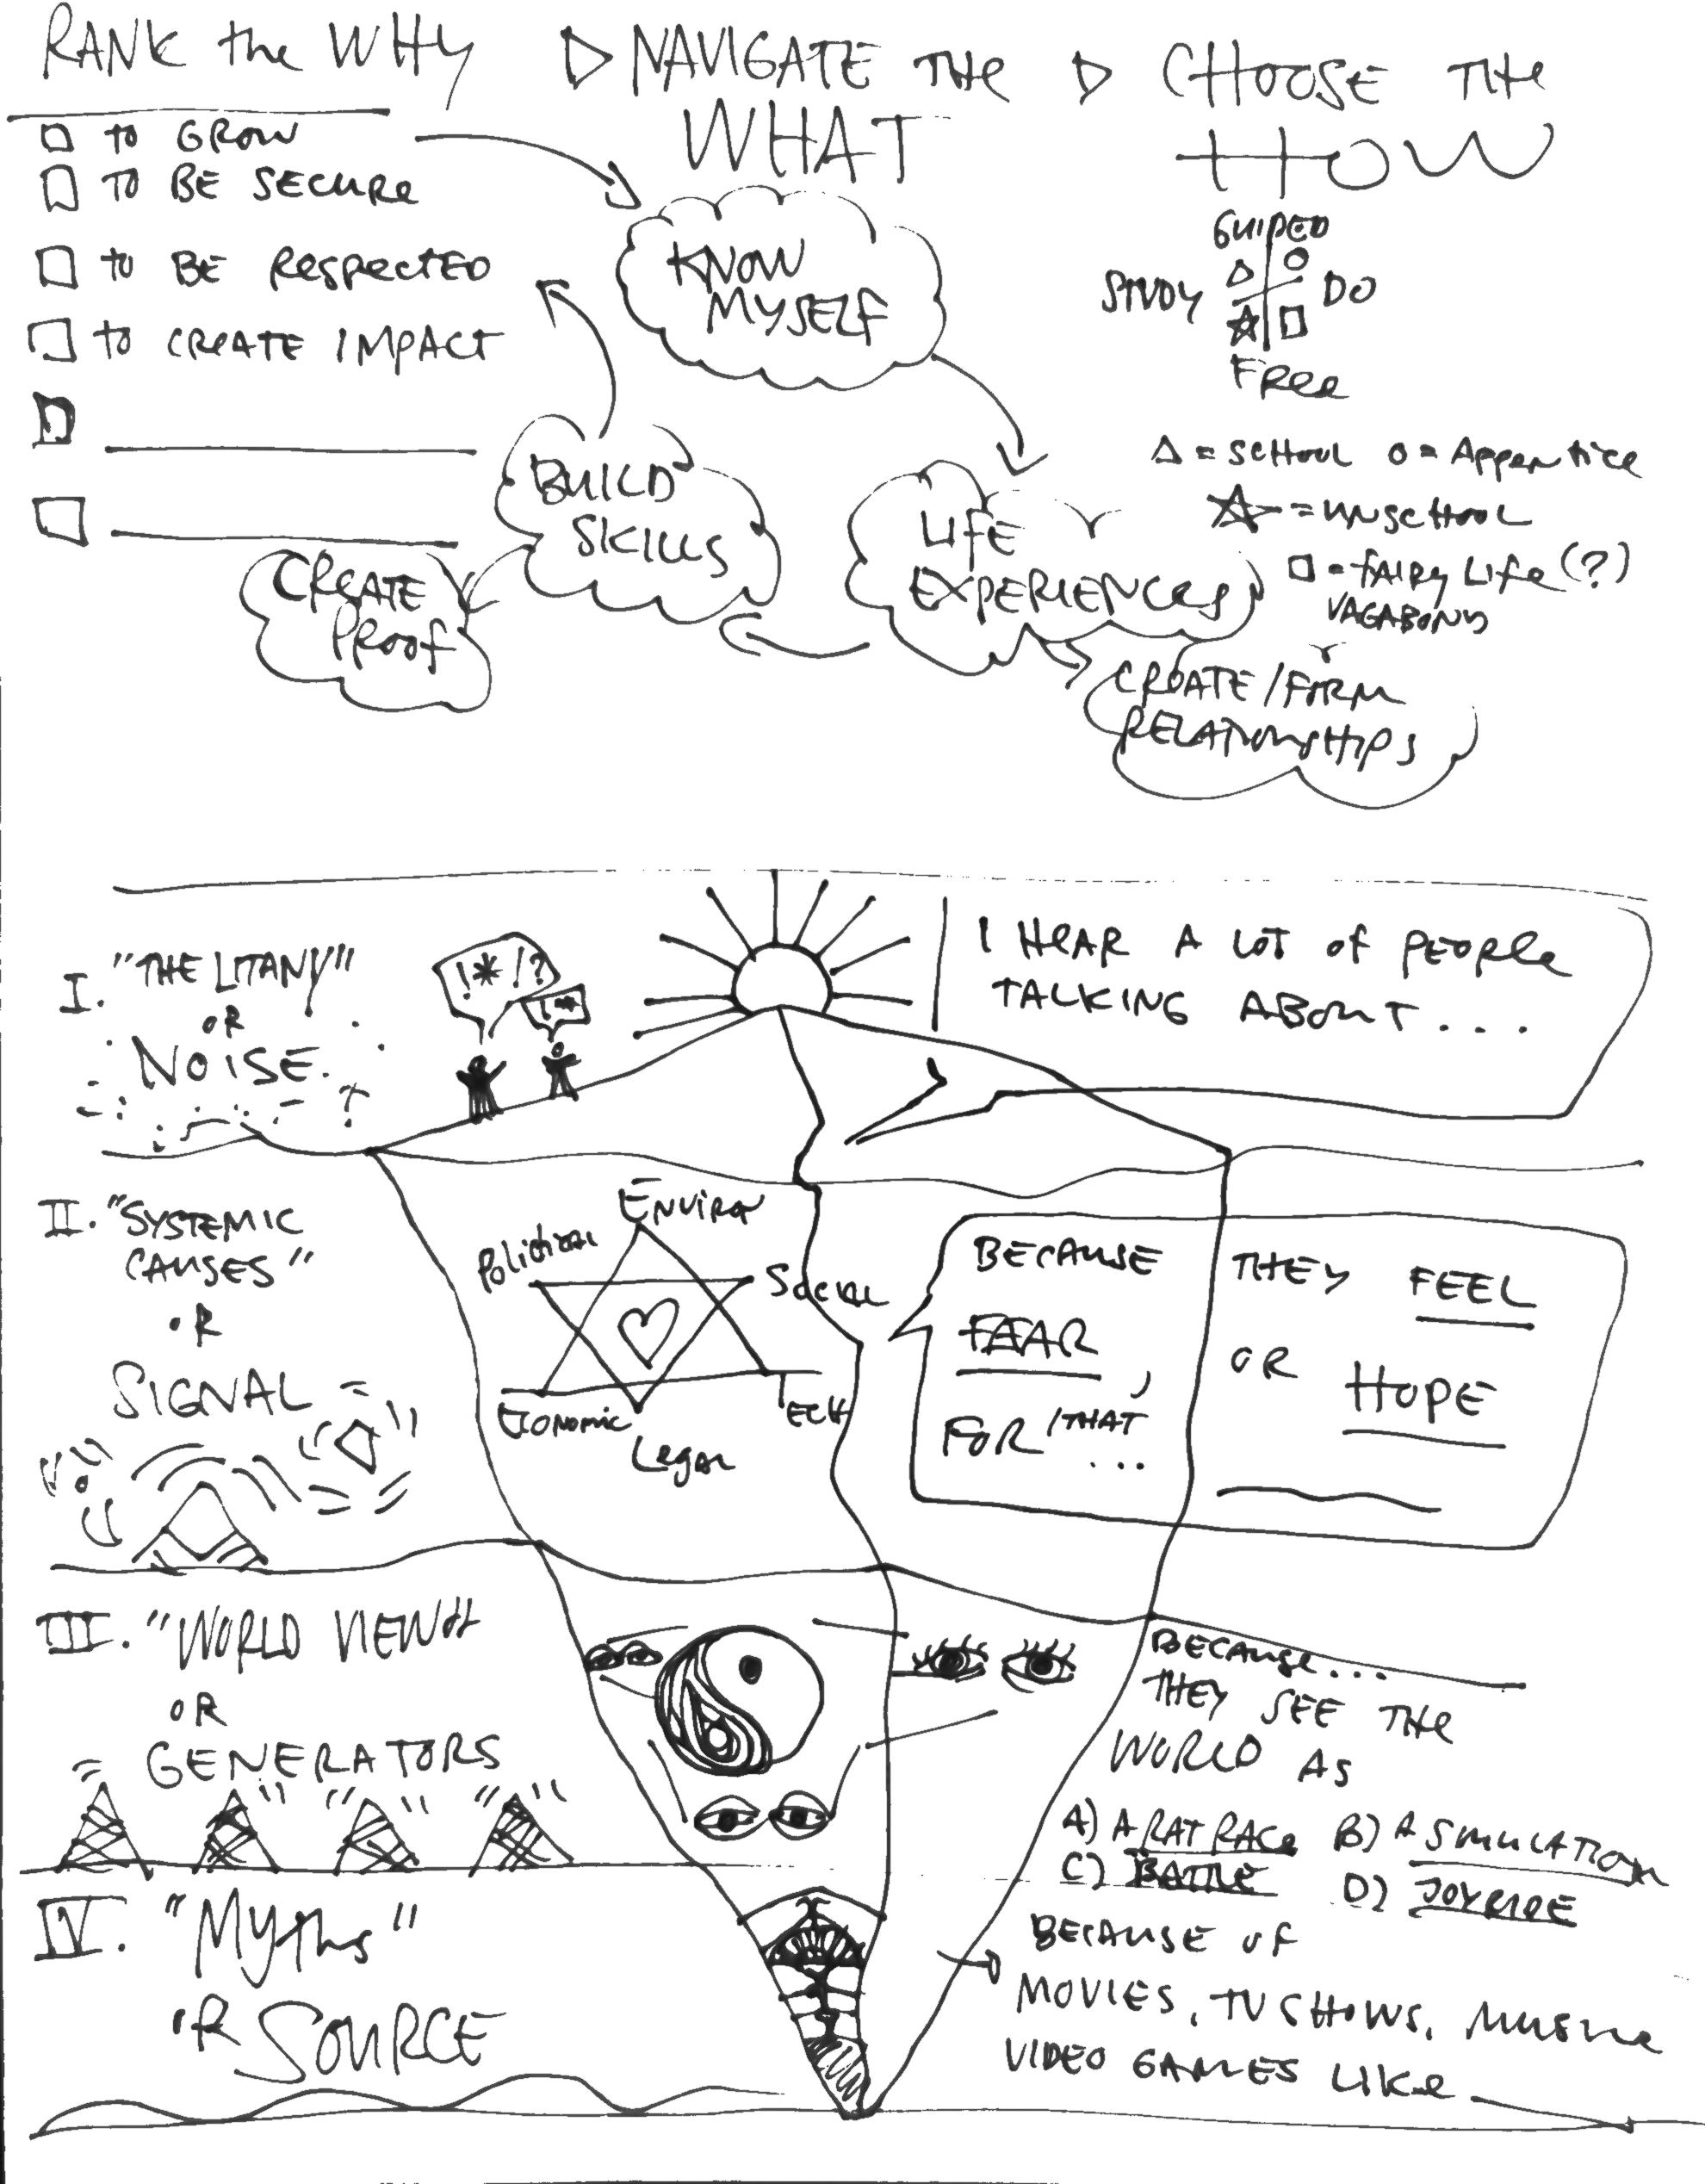 RANK the WHY
▷ NAVIGATE THE
WHAT
▷ CHOOSE THE
HOW
□ to GROW
□ TO BE SECURE
□ to BE RESPECTED
□ to CREATE IMPACT
□
□
KNOW
MYSELF
LIFE
EXPERIENCES
BUILD
SKILLS
CREATE
PROOF
CREATE/FORM
RELATIONSHIPS
GUIDED
STUDY △ ○ DO
☆ □
FREE
△ = SCHOOL ○ = Apprentice
☆ = UNSCHOOL
□ = FAIRY LIFE (?)
VAGABOND
I. "THE LITANY"
OR
NOISE
!*!?
I HEAR A LOT OF PEOPLE
TALKING ABOUT....
II. "SYSTEMIC
CAUSES"
OR
SIGNAL
ENVIRO
Political
Social
Economic
TECH
Legal
BECAUSE THEY FEEL
FEAR, OR HOPE
FOR/THAT ...
III. "WORLD VIEW"
OR
GENERATORS
BECAUSE...
THEY SEE THE
WORLD AS
A) A RAT RACE B) A SIMULATION
C) BATTLE D) JOYRIDE
IV. "Myths"
OR SOURCE
BECAUSE OF
MOVIES, TV SHOWS, MUSIC
VIDEO GAMES LIKE